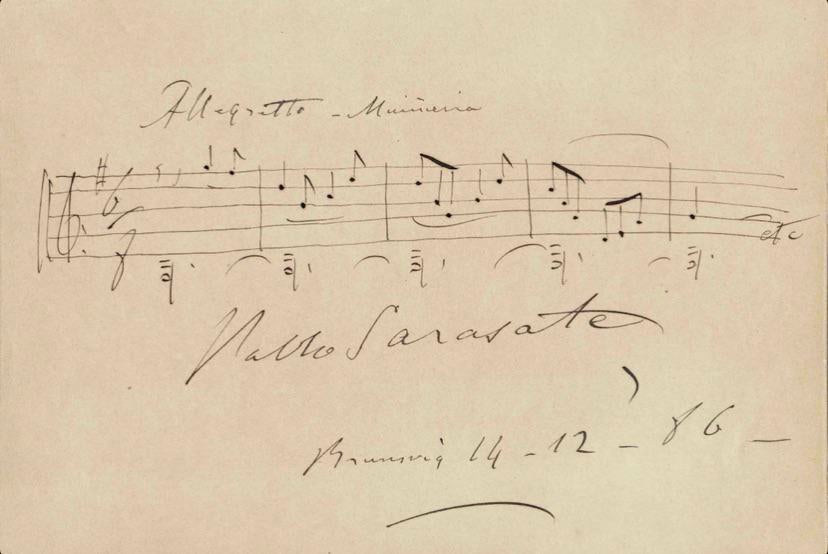 Allegretto - Muiñeira
6
8
f
etc
Pablo Sarasate
Brunsvig 14 - 12 - 86 -